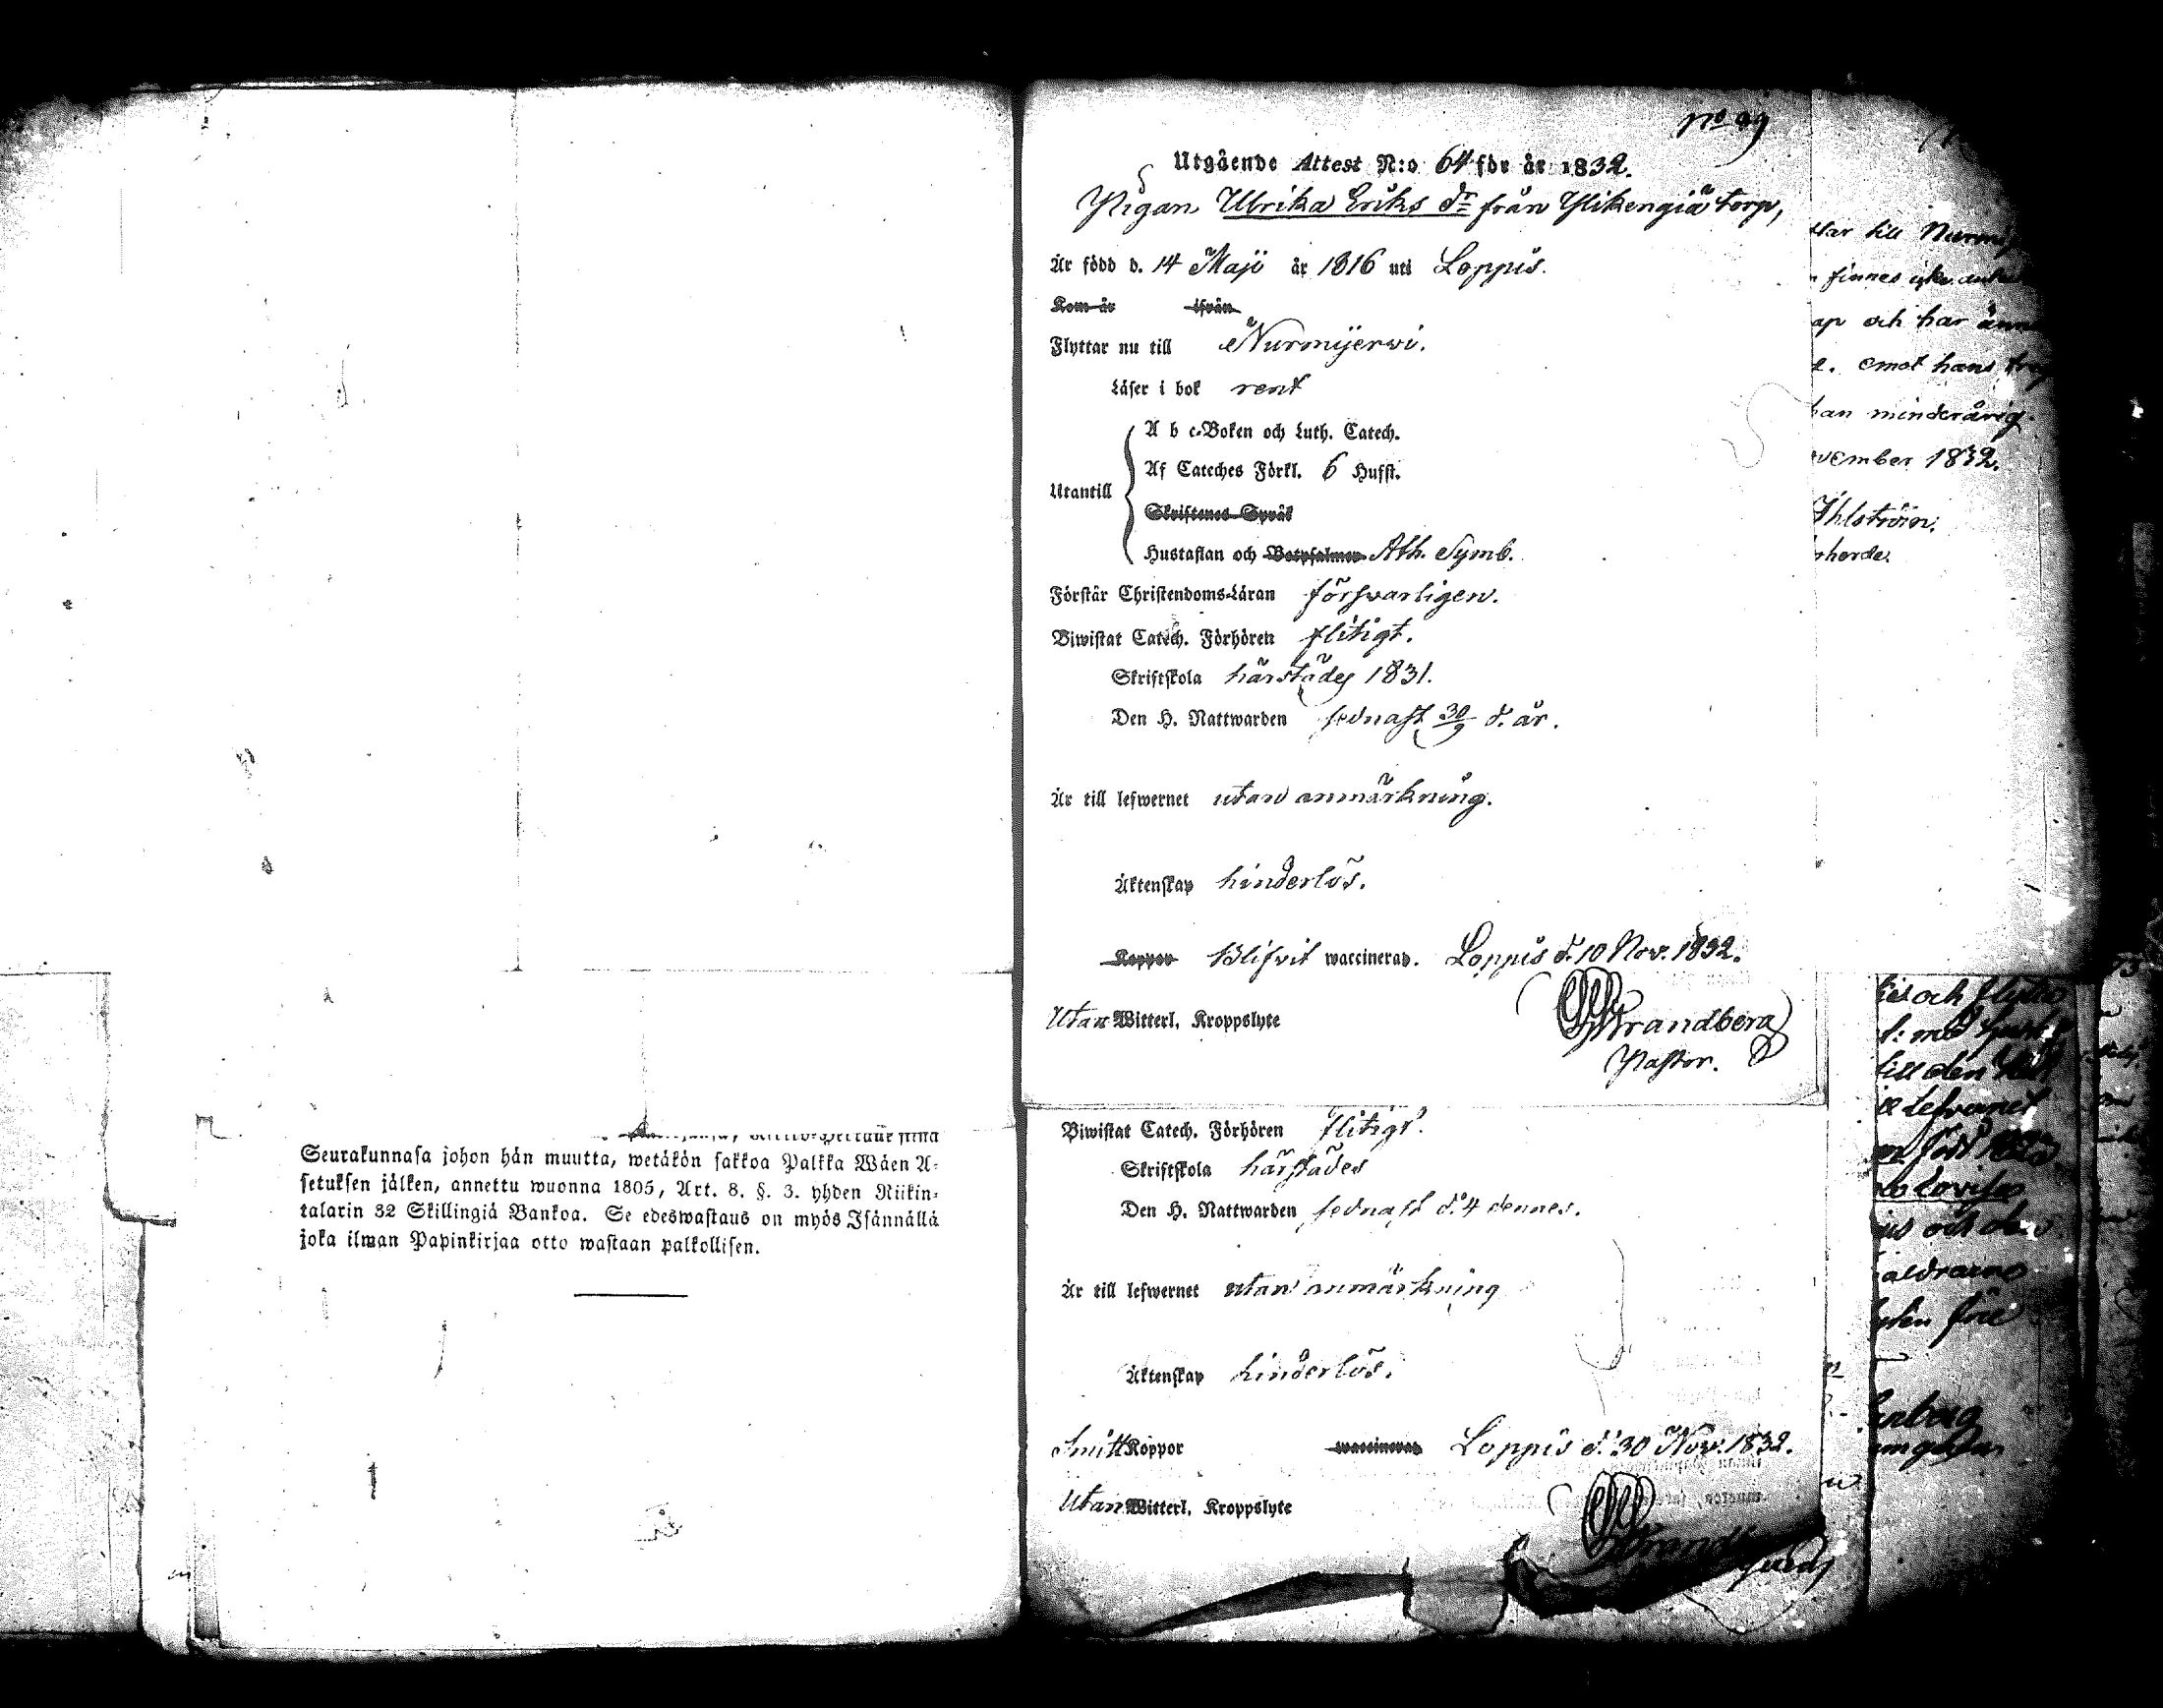 Seurakunnasa johon hän muutta, wetäkön sakkoa Palkka Wäen A-
setuksen jälken, annettu wuonna 1805, Art. 8. §. 3. yhden Riikin-
talarin 32 Skillingiä Bankoa. Se edeswastaus on myös Isännällä
joka ilman Papinkirjaa otto wastaan palkollisen.
No 99
Utgående Attest N:o 64 för år 1832.
Pigan Ulrika Eriks dr från Ylikengiä torp,
Är född d. 14 Maji år 1816 uti Loppis.
Kom år ifrån
Flyttar nu till Nurmijerwi.
Läser i bok rent
Utantill
A b c-Boken och Luth. Catech.
Af Cateches Förkl. 6 Hufst.
Skriftenes Språk
Hustaflan och Botpsalmer Ath. Symb.
Förstår Christendoms-Läran försvarligen.
Biwistat Catech. Förhören flitigt.
Skriftskola härstädes 1831.
Den H. Nattwarden sednast 30/9 d. år.
Är till lefwernet utan anmärkning.
Äktenskap hinderlös.
Koppor Blifvit waccinerad. Loppis d. 10 Nov. 1832.
Utan Witterl. Kroppslyte
Strandberg
Pastor.
Biwistat Catech. Förhören flitigt.
Skriftskola härstädes
Den H. Nattwarden sednast d. 4 dennes.
Är till lefwernet utan anmärkning
Äktenskap hinderlös.
Smitt Koppor waccinerad Loppis d. 30 Nov. 1832.
Utan Witterl. Kroppslyte
ttar till
finnes icke
ap och har
emot hans
han minderårig.
vember 1832.
Ihlström.
herde.
och
till den
aldrarne